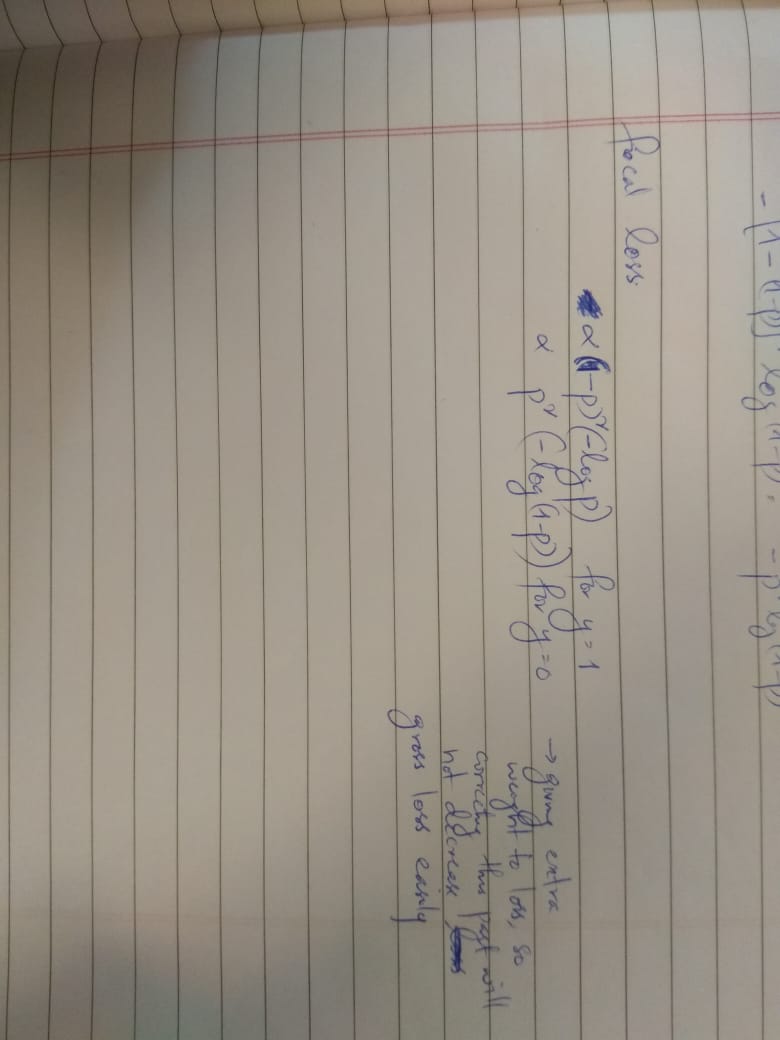 - (1-(1-p)ʳ log(1-p) = - pʳ log(1-p)
focal loss
α(1-p)ʳ(-log p) for y=1
α pʳ(-log(1-p)) for y=0
→ giving extra
weight to loss, so
this part will
not decrease
gross loss easily